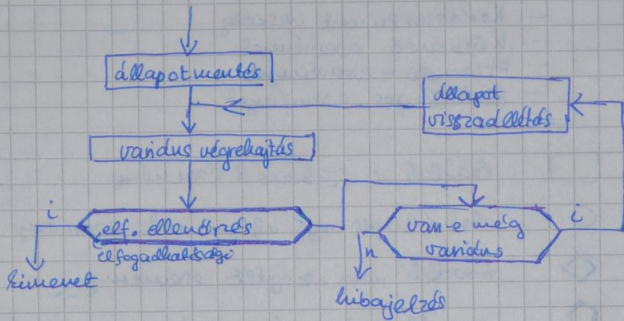 állapotmentés
állapot
visszaállítás
variáns végrehajtás
i
elf. ellenőrzés
(elfogadhatósági)
van-e még
variáns
i
n
kimenet
hibajelzés